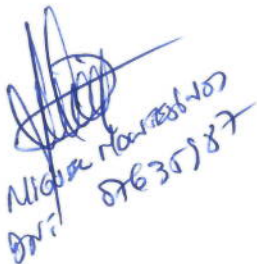 MIGUEL MONTESINOS
DNI 07635987